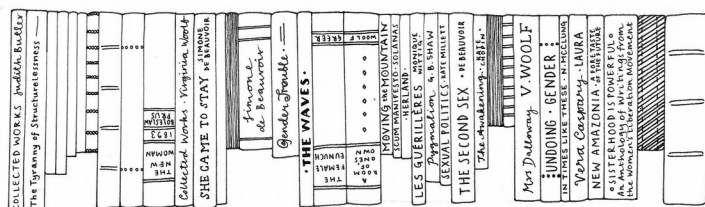 COLLECTED WORKS Judith Butler
The Tyranny of Structurelessness
THE
NEW
WOMAN
1893
BOLESLAW
PRUS
Collected Works · Virginia Woolf
SHE CAME TO STAY SIMONE
DE BEAUVOIR
Simone
de Beauvoir
Gender Trouble.
· THE WAVES ·
THE
FEMALE
EUNUCH
GREER
A
ROOM
OF
ONES
OWN
WOOLF
MOVING the MOUNTAIN
SCUM MANIFESTO · SOLANAS
· HERLAND ·
LES GUÉRILLÈRES MONIQUE
WITTIG
Pygmalion G. B. SHAW
SEXUAL POLITICS · KATE MILLETT
THE SECOND SEX · DE BEAUVOIR
The Awakening · KATE
CHOPIN
Mrs Dalloway V. WOOLF
· UNDOING · GENDER ·
IN TIMES LIKE THESE · N. MCCLUNG
Vera Caspary · LAURA
NEW AMAZONIA · A FORETASTE
OF THE FUTURE
SISTERHOOD IS POWERFUL
An Anthology of Writings from
the Women's Liberation Movement